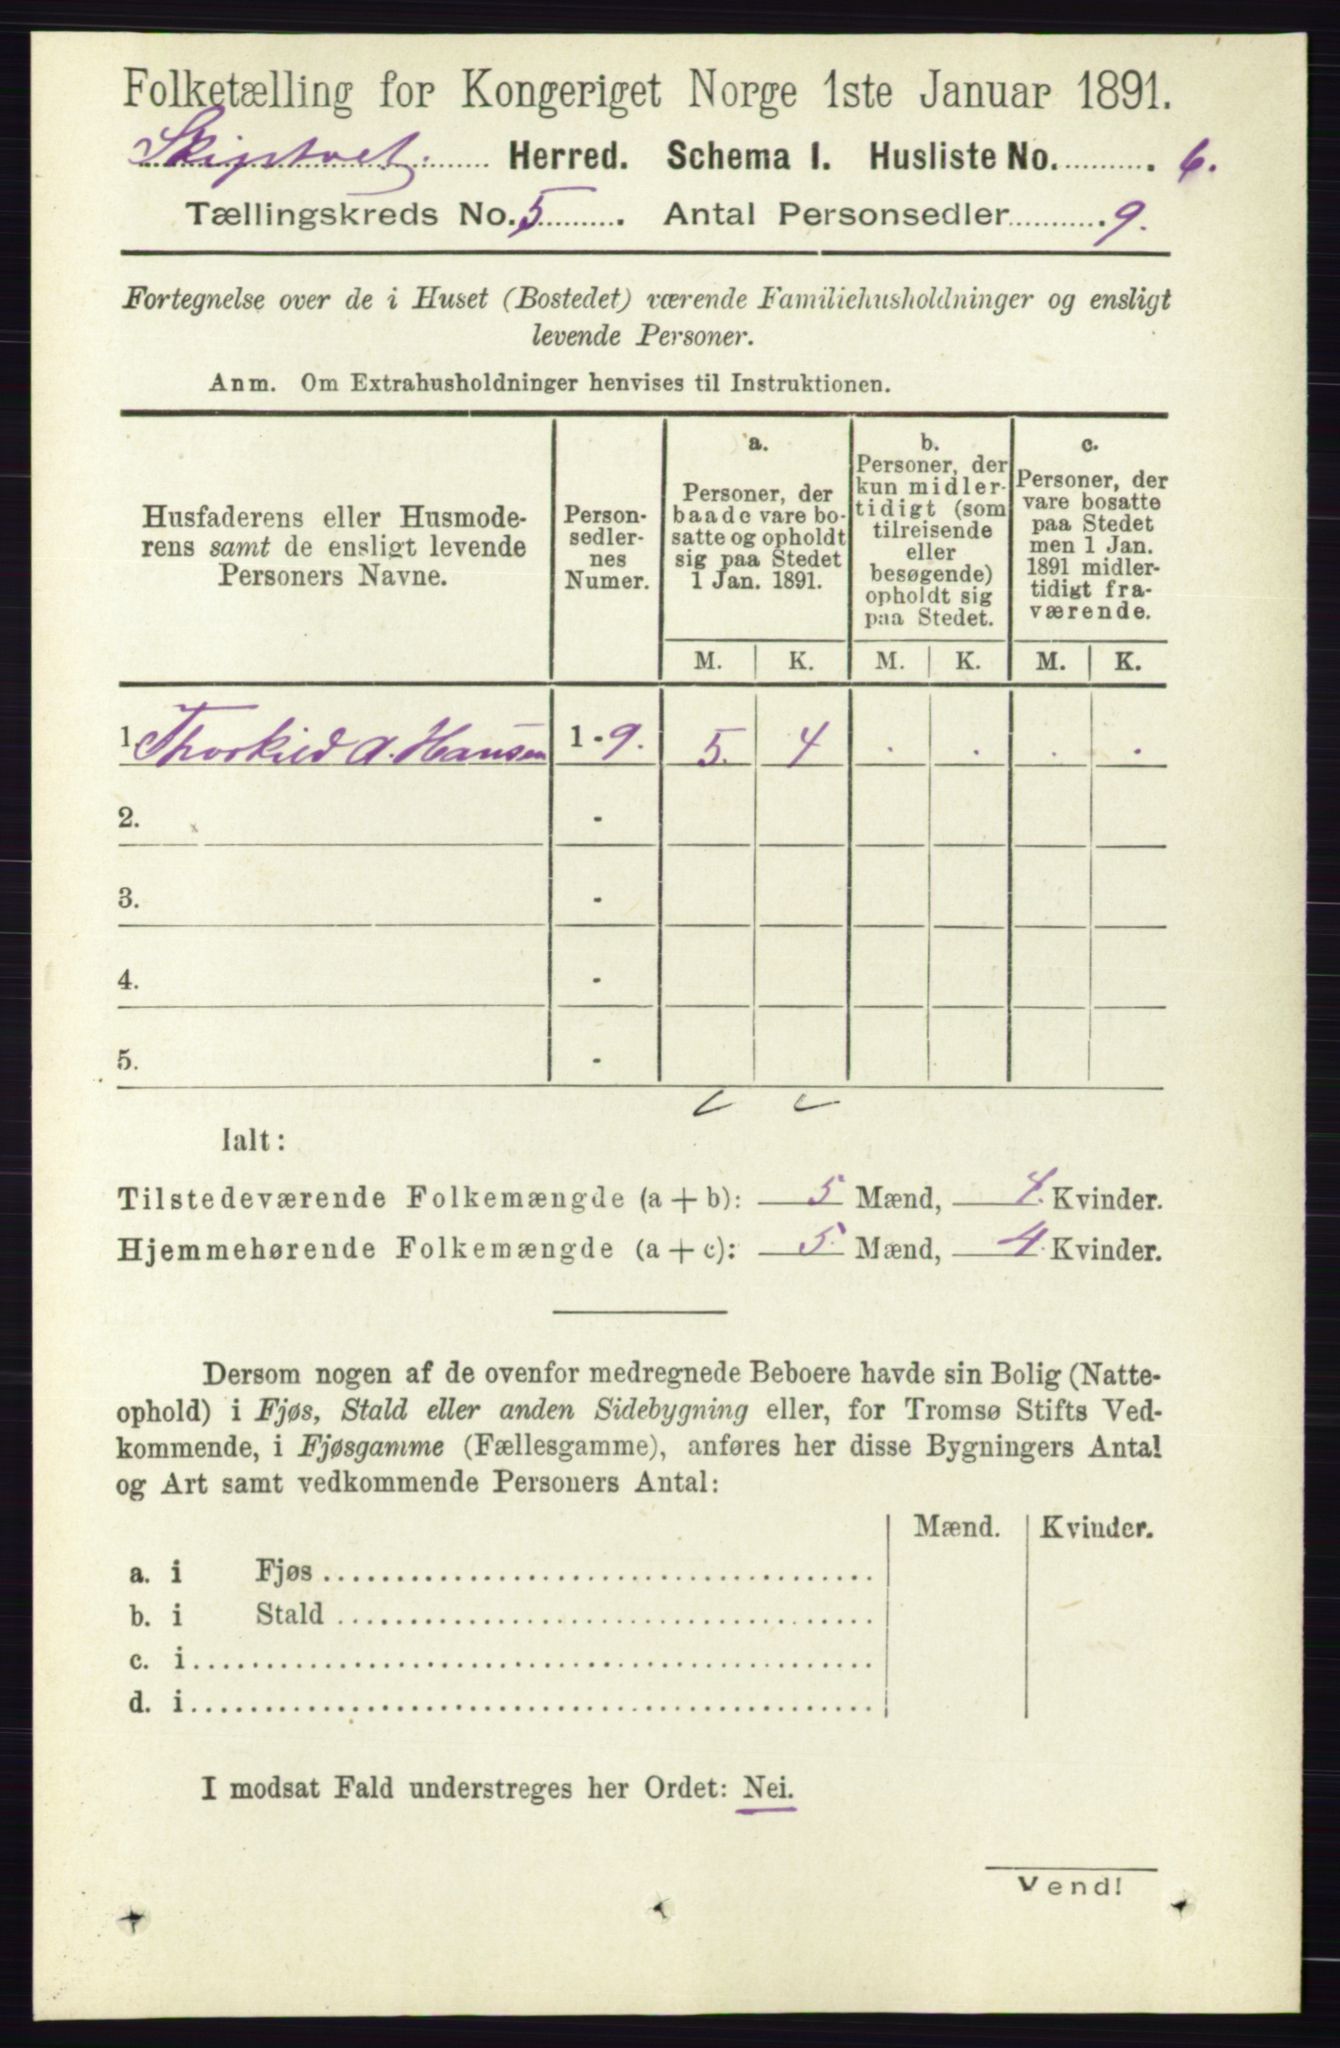 Folketælling for Kongeriget Norge 1ste Januar 1891.
Skiptvet. Herred. Schema I. Husliste No. 6.
Tællingskreds No. 5. Antal Personsedler 9.
Fortegnelse over de i Huset (Bostedet) værende Familiehusholdninger og ensligt
levende Personer.
Anm. Om Extrahusholdninger henvises til Instruktionen.
Husfaderens eller Husmode-
rens samt de ensligt levende
Personers Navne.
Person-
sedler-
nes
Numer.
a.
Personer, der
baade vare bo-
satte og opholdt
sig paa Stedet
1 Jan. 1891.
b.
Personer, der
kun midler-
tidigt (som
tilreisende
eller
besøgende)
opholdt sig
paa Stedet.
c.
Personer, der
vare bosatte
paa Stedet
men 1 Jan.
1891 midler-
tidigt fra-
værende.
M. K. M. K. M. K.
1 Thorkild A. Hansen 1 - 9. 5. 4 . . . .
2. -
3. -
4. -
5. -
Ialt:
Tilstedeværende Folkemængde (a + b): 5 Mænd, 4. Kvinder.
Hjemmehørende Folkemængde (a + c): 5. Mænd, 4. Kvinder.
Dersom nogen af de ovenfor medregnede Beboere havde sin Bolig (Natte-
ophold) i Fjøs, Stald eller anden Sidebygning eller, for Tromsø Stifts Ved-
kommende, i Fjøsgamme (Fællesgamme), anføres her disse Bygningers Antal
og Art samt vedkommende Personers Antal:
Mænd. Kvinder.
a. i Fjøs
b. i Stald
c. i
d. i
I modsat Fald understreges her Ordet: Nei.
Vend!